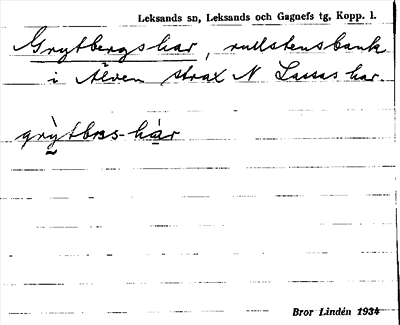 Leksands sn, Leksands och Gagnefs tg, Kopp. l.
Grytbergshar, rullstensbank
i Älven strax N Lassas har.
grỳtbæs-hàr
Bror Lindén 1934